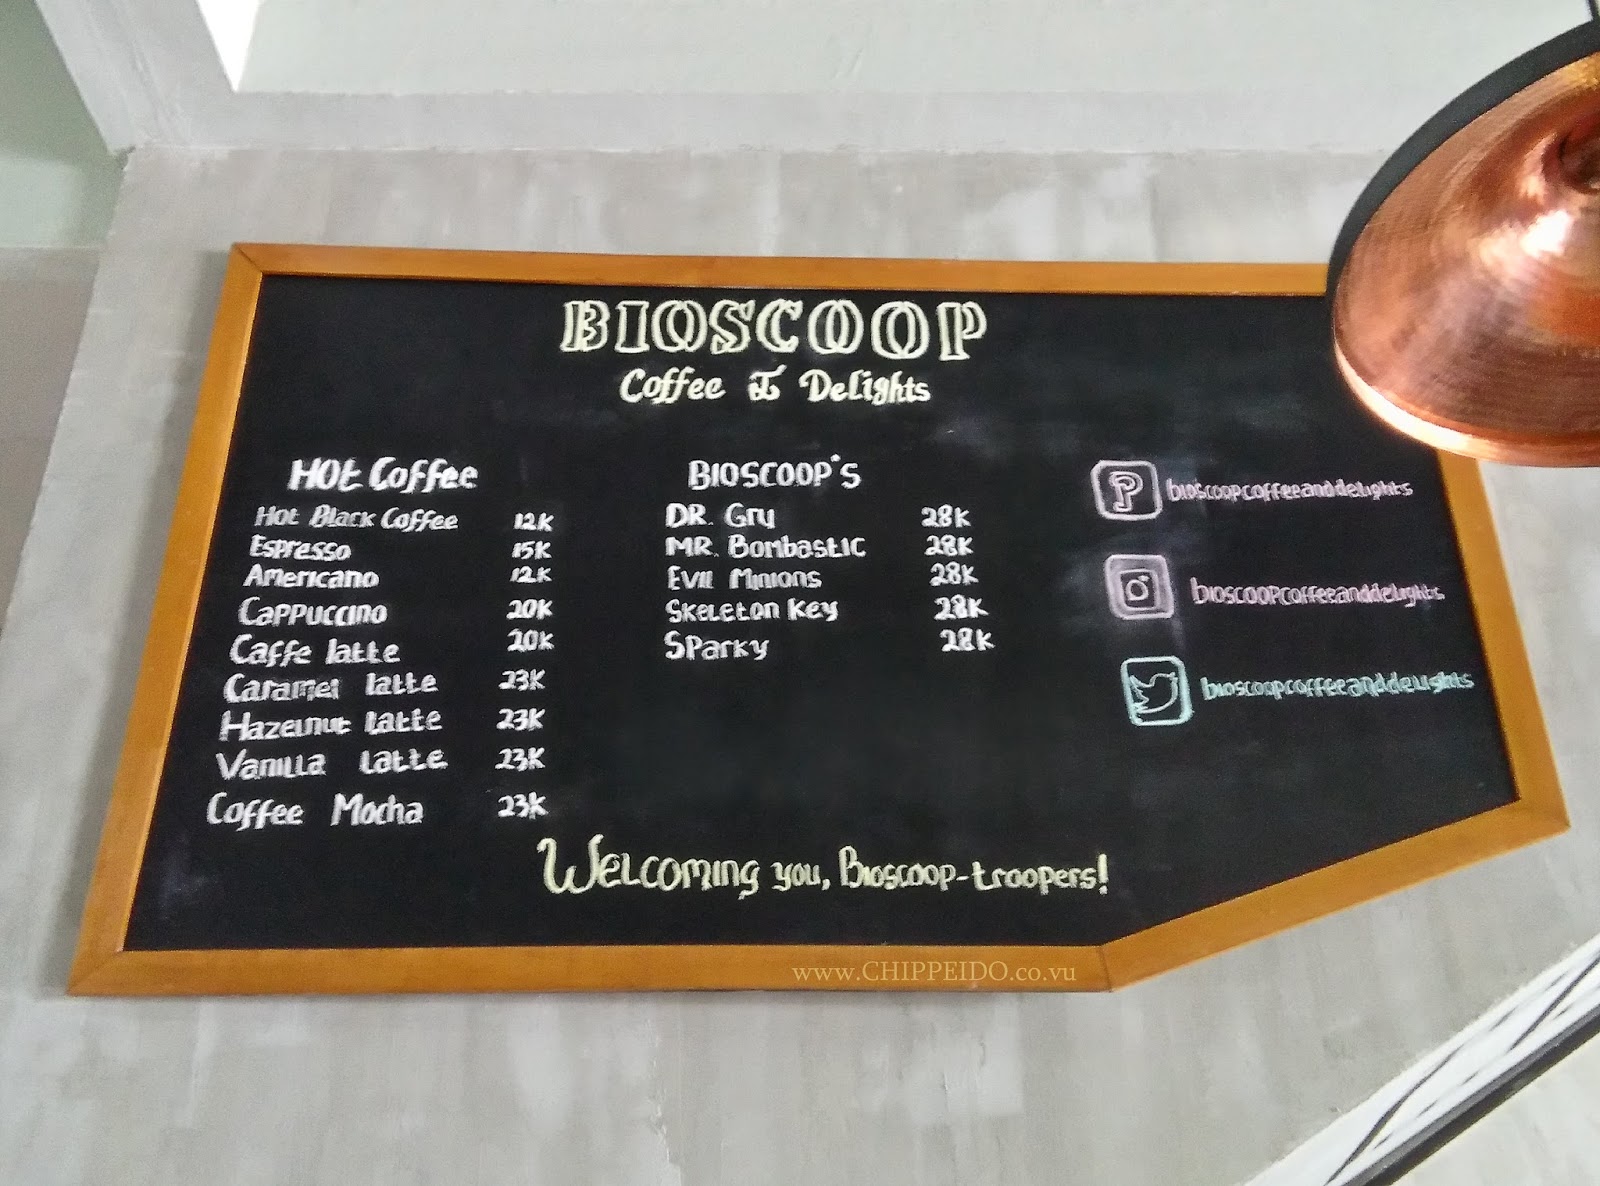 BIOSCOOP
Coffee & Delights
Hot Coffee
Hot Black Coffee 12K
Espresso 15K
Americano 12K
Cappuccino 20K
Caffe latte 20K
Caramel latte 23K
Hazelnut latte 23K
Vanilla latte 23K
Coffee Mocha 23K
BIOSCOOP'S
DR. Gru 28K
MR. Bombastic 28K
Evil Minions 28K
Skeleton Key 28K
Sparky 28K
bioscoopcoffeeanddelights
bioscoopcoffeeanddelights
bioscoopcoffeeanddelights
Welcoming you, Bioscoop-troopers!
www.CHIPPEIDO.co.vu